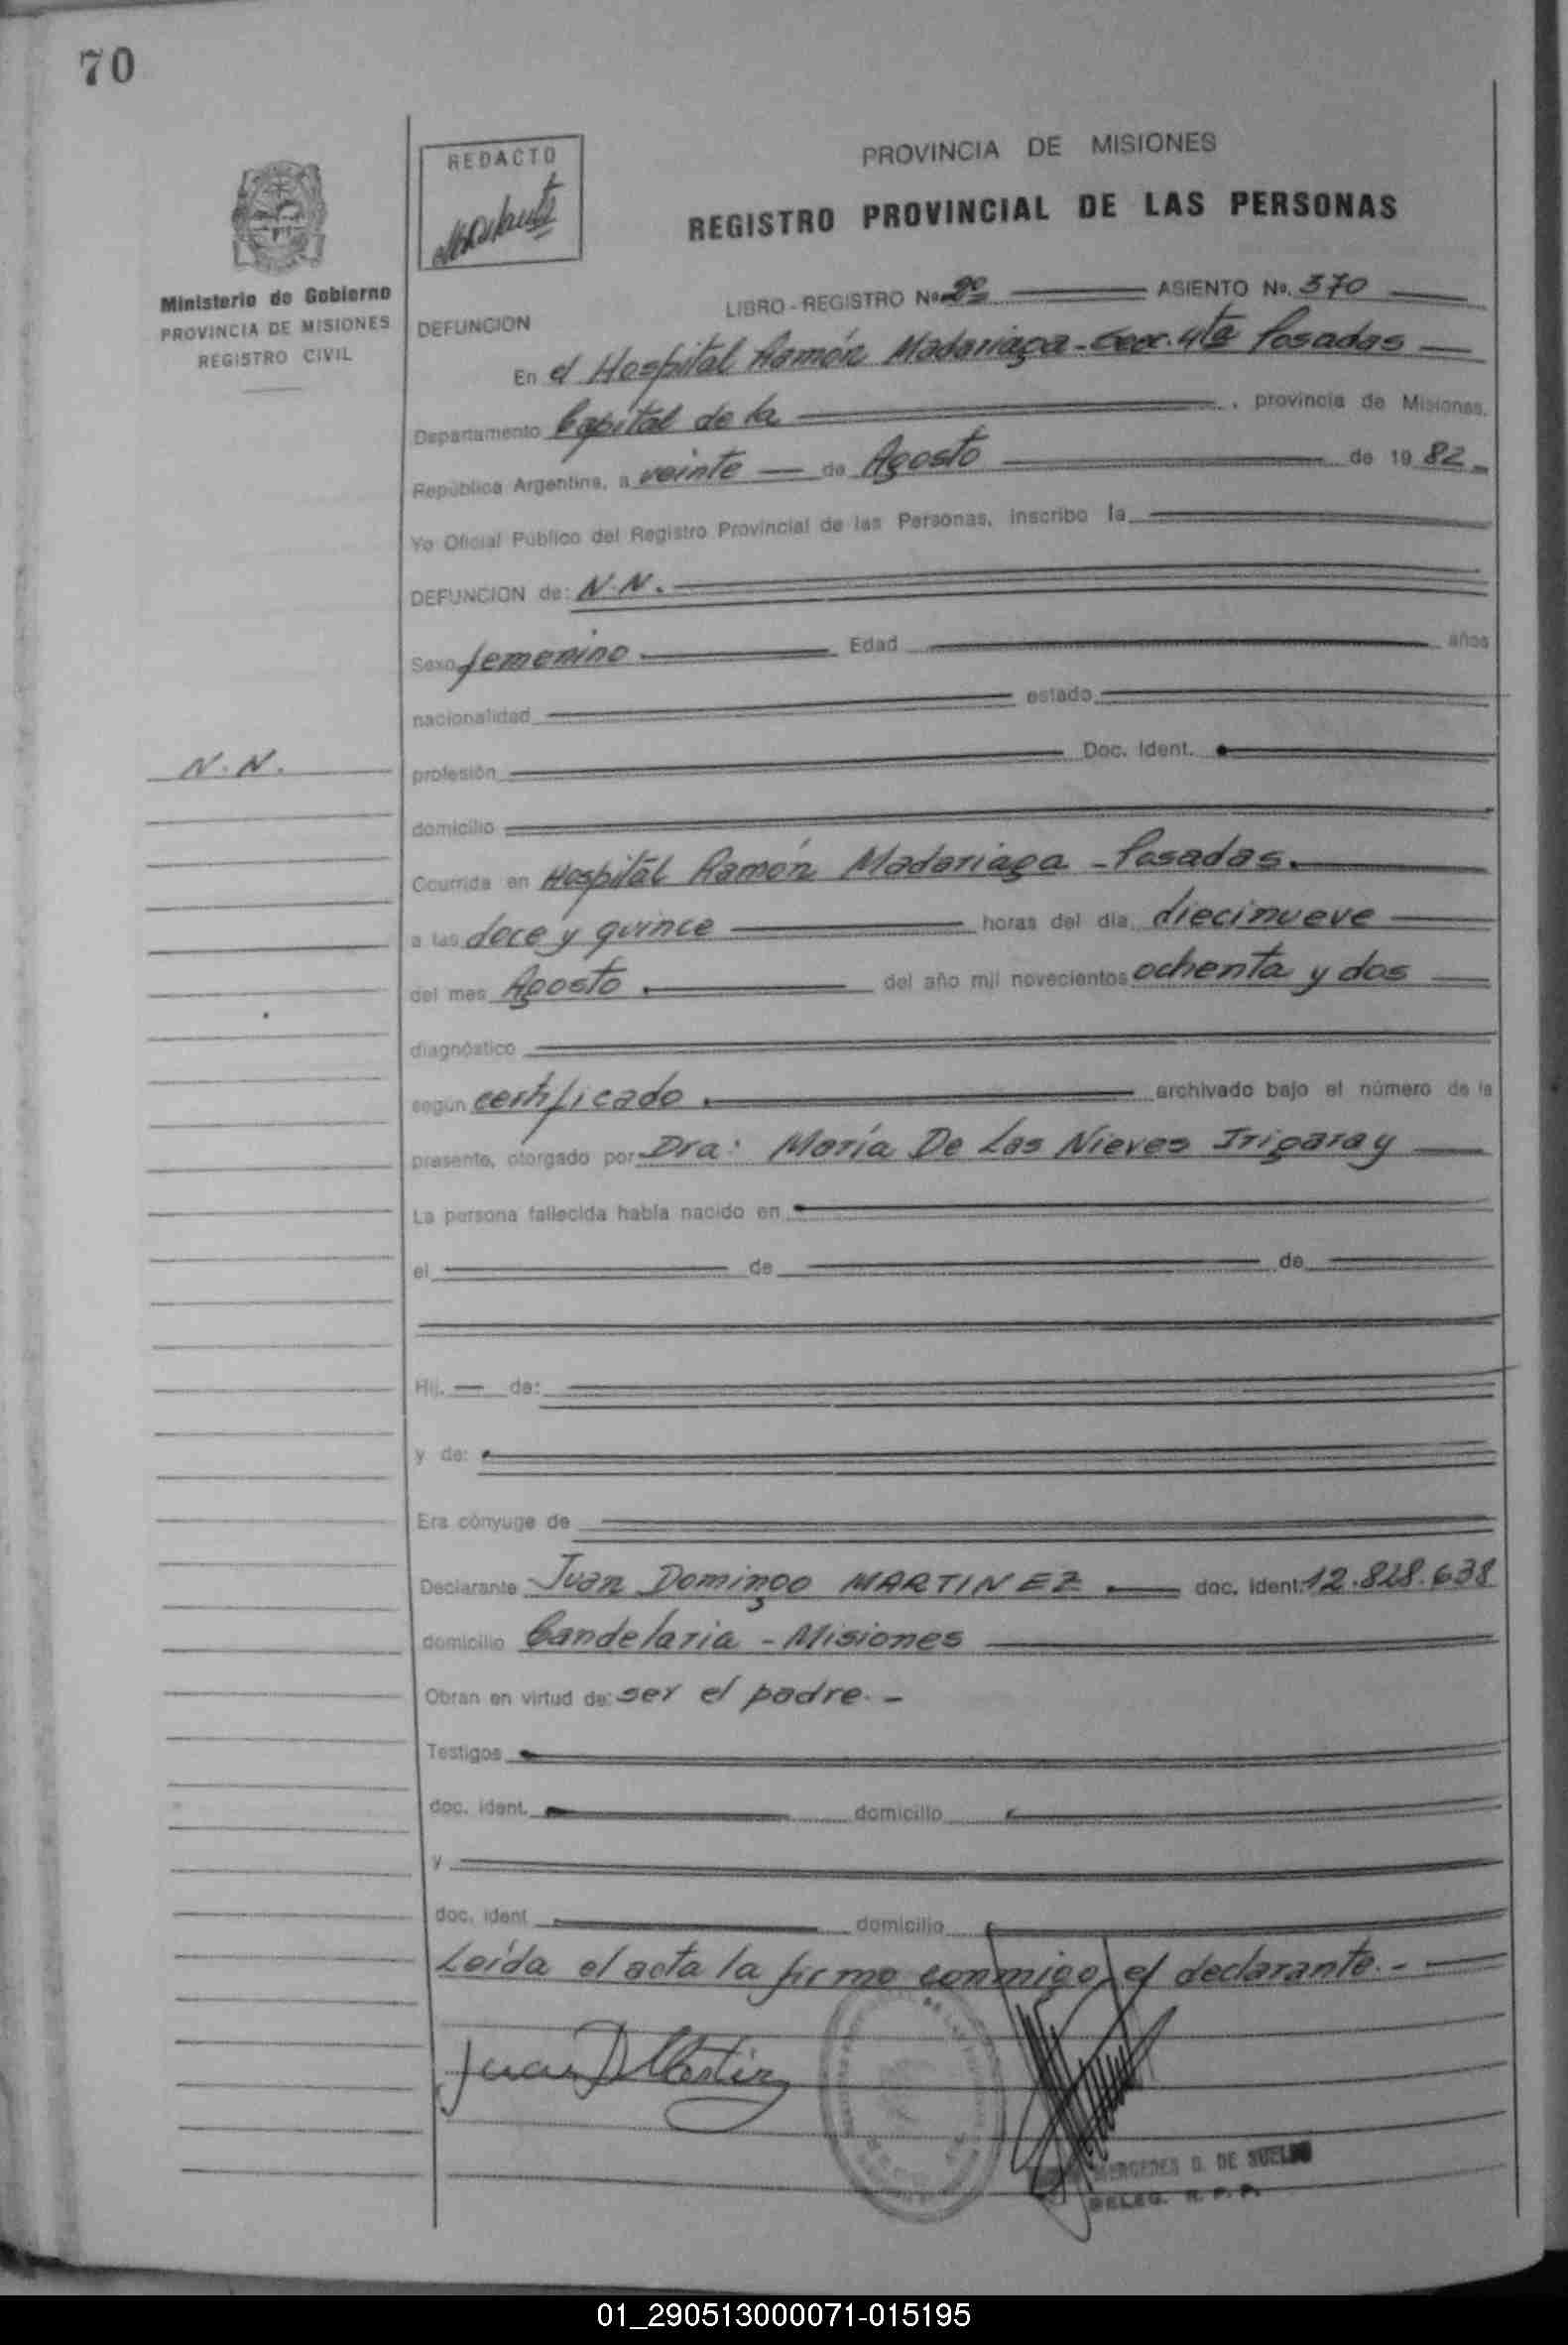 70
REDACTO
PROVINCIA DE MISIONES
REGISTRO PROVINCIAL DE LAS PERSONAS
Ministerio de Gobierno
PROVINCIA DE MISIONES
REGISTRO CIVIL
LIBRO - REGISTRO Nº 2º ASIENTO Nº. 370
DEFUNCION
En el Hospital Ramón Madariaga - Secc. 4ta Posadas
Departamento Capital de la , provincia de Misiones,
República Argentina, a veinte de Agosto de 19 82
Yo Oficial Público del Registro Provincial de las Personas, inscribo la
DEFUNCION de: N.N.
Sexo femenino Edad años
nacionalidad estado
N.N.
profesión Doc. Ident.
domicilio
Ocurrida en Hospital Ramón Madariaga - Posadas.
a las doce y quince horas del día diecinueve
del mes Agosto del año mil novecientos ochenta y dos
diagnóstico
según certificado archivado bajo el número de la
presente, otorgado por Dra: María De Las Nieves Irigaray
La persona fallecida había nacido en
el de de
Hij. de:
y de:
Era cónyuge de
Declarante Juan Domingo MARTINEZ doc. ident. 12.828.638
domicilio Candelaria - Misiones
Obran en virtud de: ser el padre. -
Testigos
doc. ident. domicilio
y
doc. ident domicilio
Leída el acta la firma conmigo, el declarante. -
Juan D Martinez
MERCEDES G. DE SUELDO
DELEG. R. P. P.
01_290513000071-015195